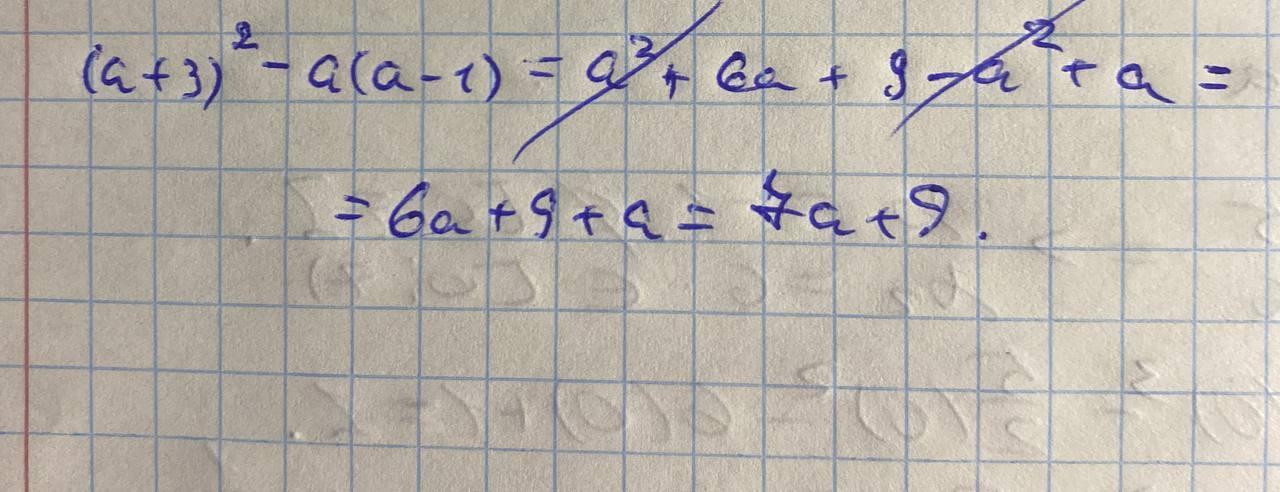 (a+3)² - a(a-1) = a² + 6a + 9 - a² + a =
= 6a + 9 + a = 7a + 9.